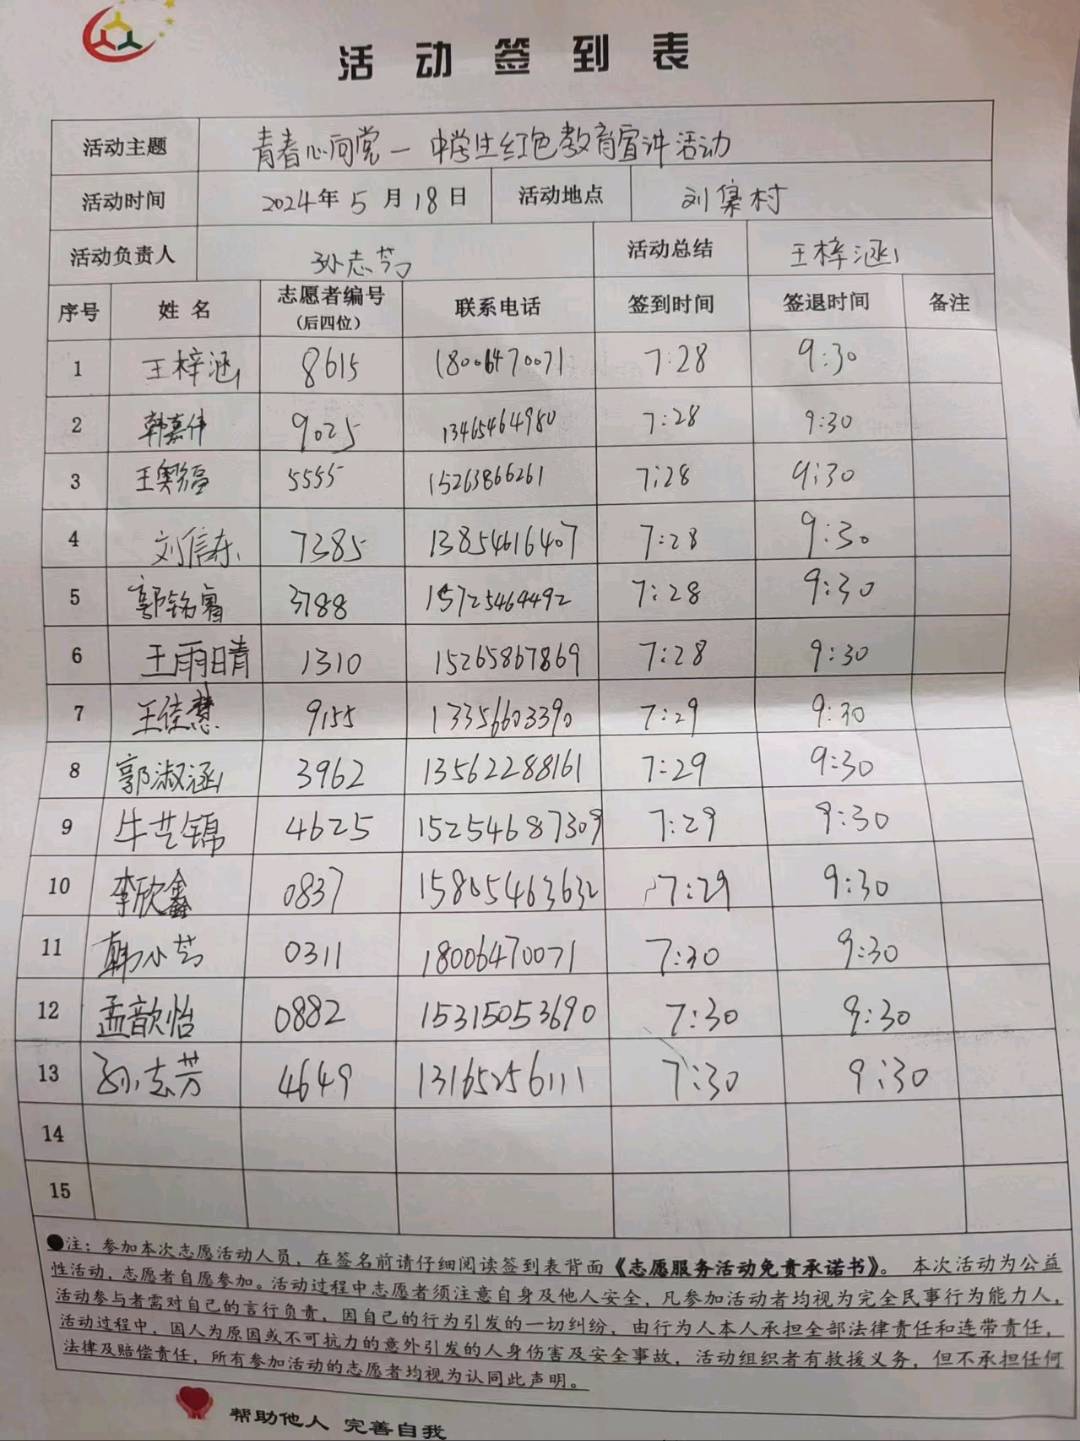 活动签到表
活动主题 青春心向党一中学生红色教育宣讲活动
活动时间 2024年5月18日 活动地点 刘集村
活动负责人 孙志芳 活动总结 王梓涵
序号 姓名 志愿者编号(后四位) 联系电话 签到时间 签退时间 备注
1 王梓涵 8615 18006470071 7:28 9:30
2 韩嘉伟 9025 13465464980 7:28 9:30
3 5555 15263866261 7:28 9:30
4 刘信东 7385 13854616407 7:28 9:30
5 郭铭睿 3788 15725464492 7:28 9:30
6 王雨晴 1310 15265867869 7:28 9:30
7 王佳慧 9155 13356603390 7:29 9:30
8 郭淑涵 3962 13562288161 7:29 9:30
9 牛艺锦 4625 15254687309 7:29 9:30
10 李欣鑫 0837 15805463632 7:29 9:30
11 韩小芳 0311 18006470071 7:30 9:30
12 孟歆怡 0882 15315053690 7:30 9:30
13 孙志芳 4649 13165256111 7:30 9:30
14
15
●注：参加本次志愿活动人员，在签名前请仔细阅读签到表背面《志愿服务活动免责承诺书》。本次活动为公益
性活动，志愿者自愿参加。活动过程中志愿者须注意自身及他人安全，凡参加活动者均视为完全民事行为能力人，
活动参与者需对自己的言行负责，因自己的行为引发的一切纠纷，由行为人本人承担全部法律责任和连带责任，
活动过程中，因人为原因或不可抗力的意外引发的人身伤害及安全事故，活动组织者有救援义务，但不承担任何
法律及赔偿责任，所有参加活动的志愿者均视为认同此声明。
帮助他人 完善自我